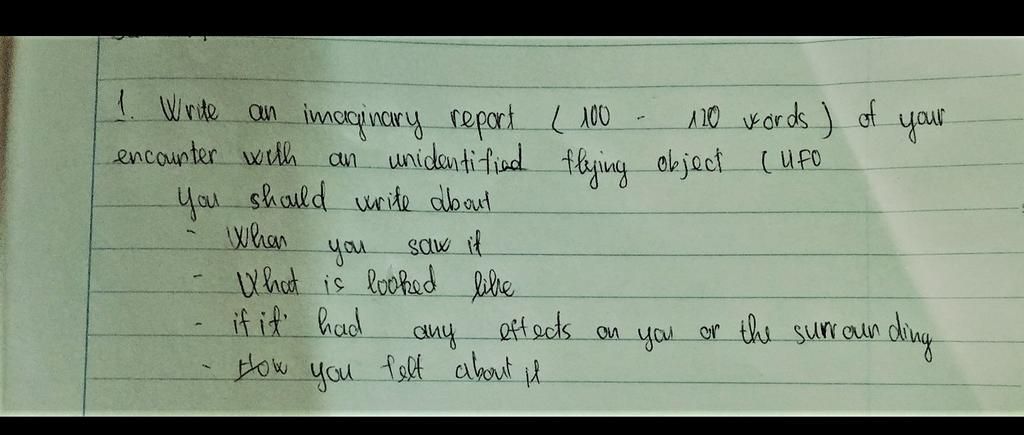 1. Write an imaginary report ( 100 - 120 words ) of your
encounter with an unidentified flying object ( UFO
You should write about
- When you saw it
- What is looked like
- if it had any effects on you or the surrounding
- How you felt about it